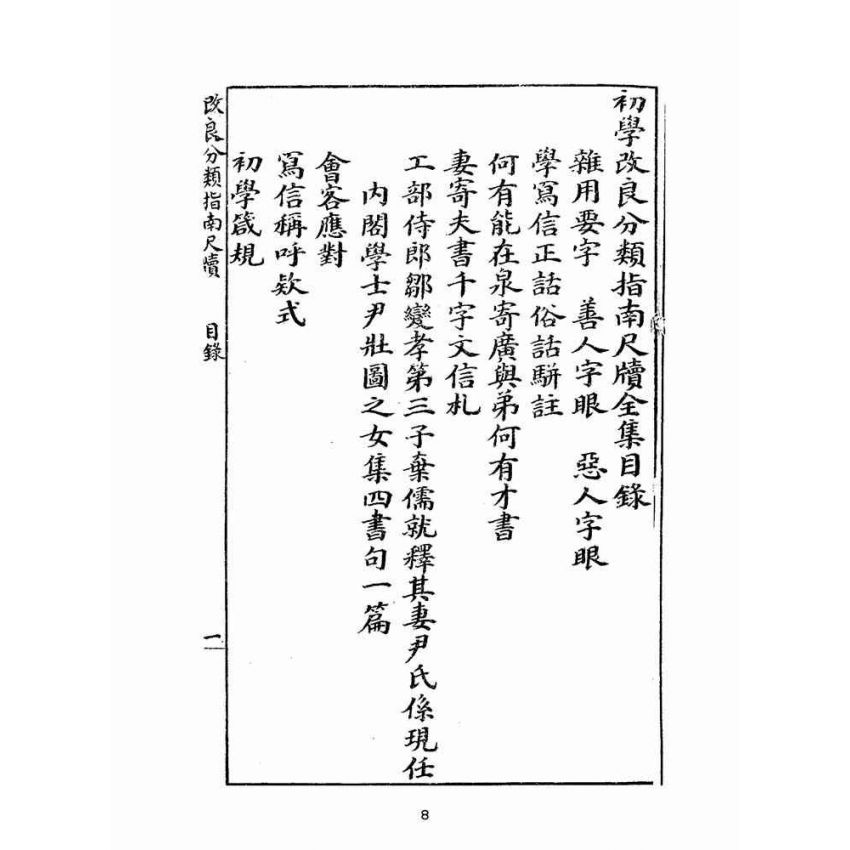 初學改良分類指南尺牘全集目錄
雜用要字　善人字眼　惡人字眼
學寫信正話俗話駢註
何有能在泉寄廣與弟何有才書
妻寄夫書千字文信札
工部侍郎鄒變孝第三子棄儒就釋其妻尹氏係現任
內閣學士尹壯圖之女集四書句一篇
會客應對
寫信稱呼欵式
初學箴規
改良分類指南尺牘　目錄　一
8